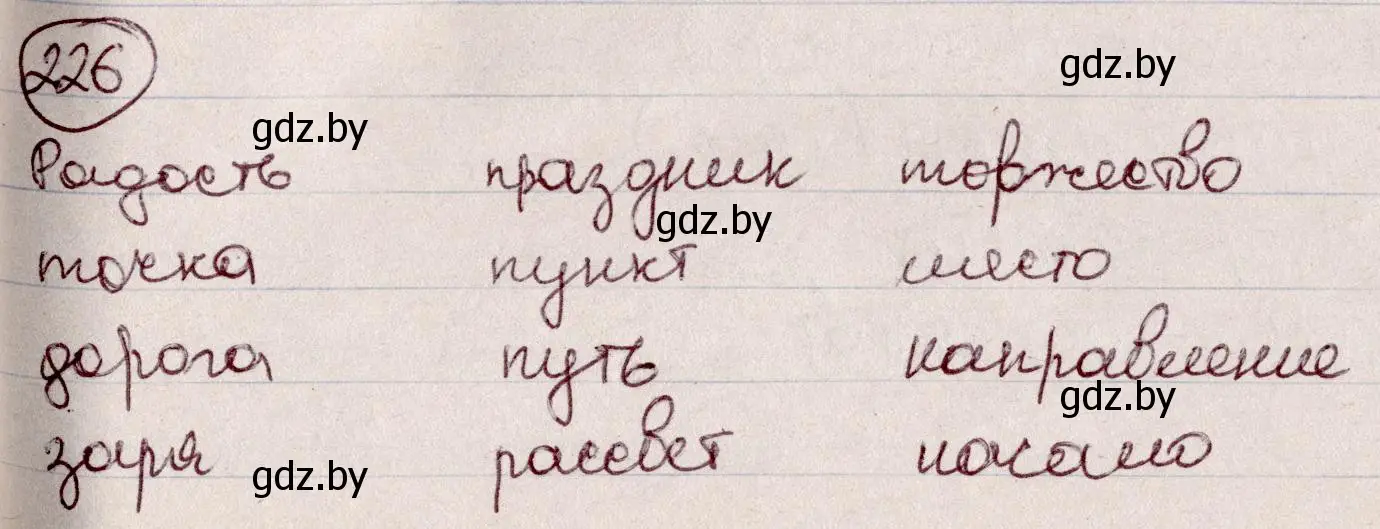 226
gdz.by
gdz.by
Радость праздник торжество
gdz.by
точка пункт место
дорога путь направление
gdz.by
заря рассвет начало
gdz.by